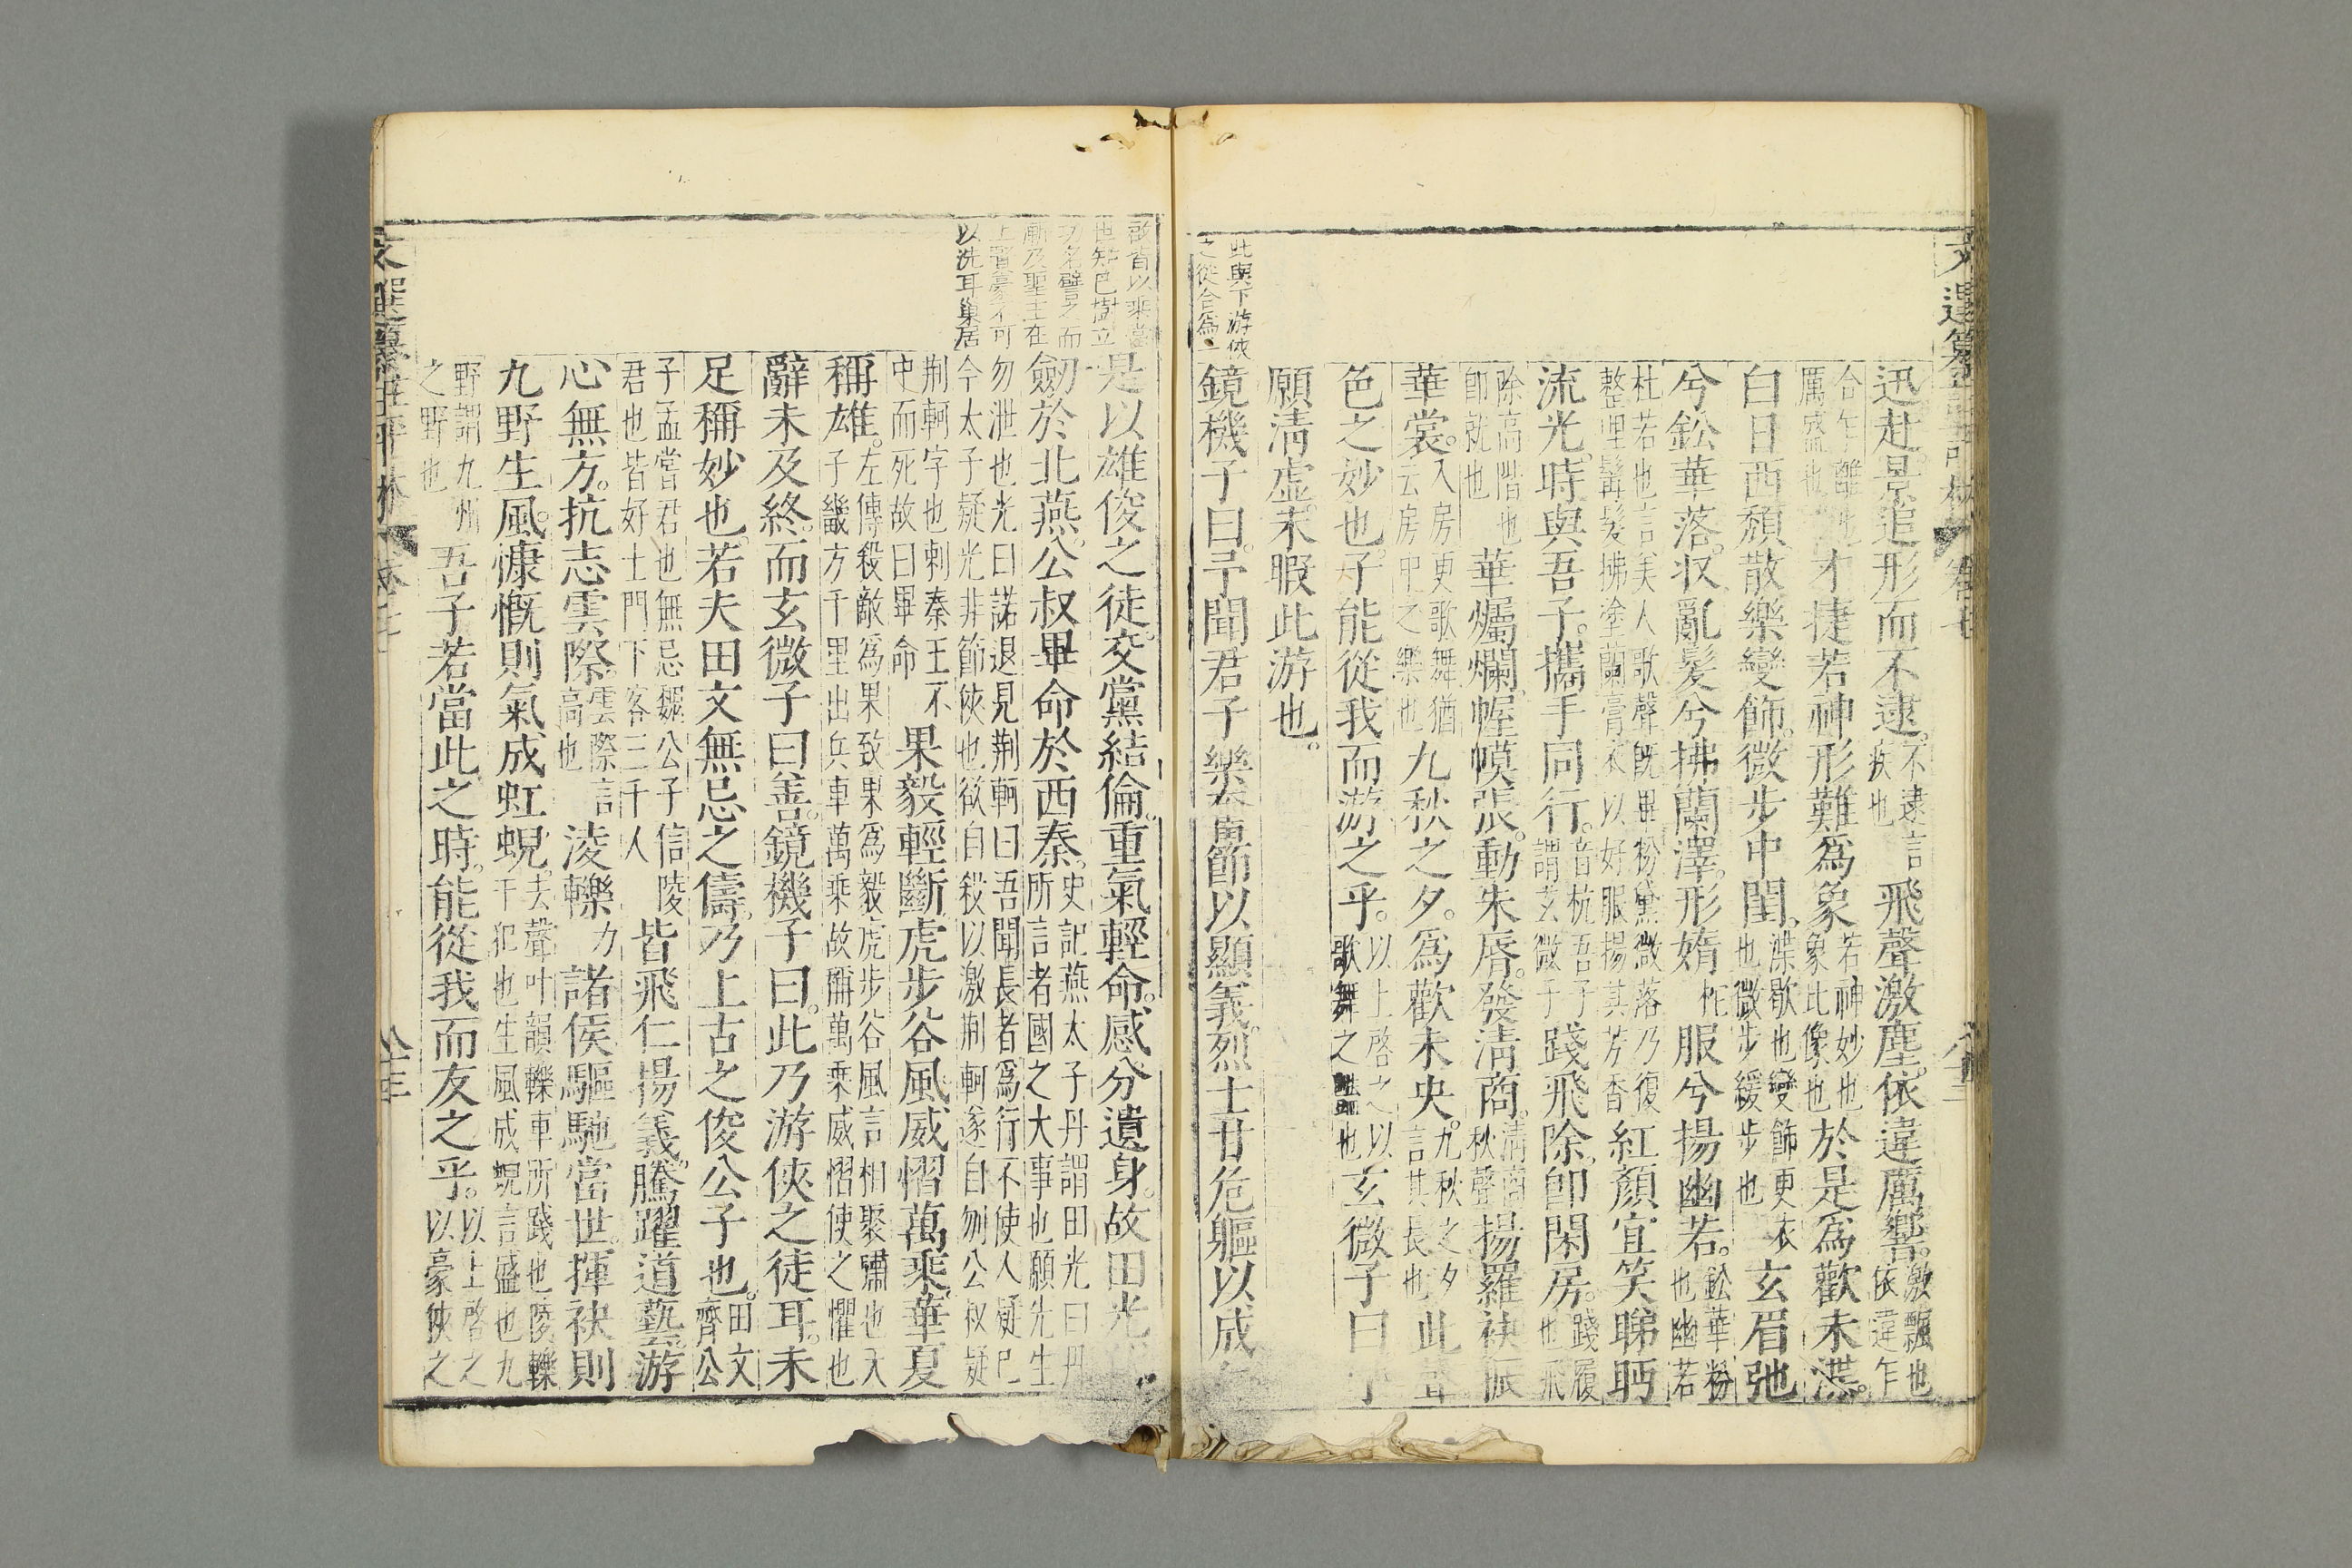 迅赴景追形而不逮。不逮言疾也飛聲激塵。依違厲響。激飄也依違乍
合乍離也厲盛也才捷若神形難爲象若神妙也象此像也於是爲歡未渫。
白日西頹。散樂變飾。微步中閨。渫歇也變飾更衣也微步緩步也玄眉弛
兮鉛華落。収亂髮兮拂蘭澤。形媠服兮揚幽若。鉛華粉也幽若
杜若也言美人歌聲既畢粉黛微落乃復整理鬢髮拂塗蘭膏衣以好服揚其芳香紅顏宜笑睇眄
流光。時與吾子。攜手同行。音杭吾子謂玄微子踐飛除。卽閑房。踐履也飛
除高階也卽就也華爥爛。幄幙張。動朱脣。發淸商。淸商秋聲揚羅袂振
華裳。入房更歌舞猶云房中之樂也九秋之夕。爲歡未央。九秋之夕言其長也此聲
色之妙也。子能從我而游之乎。以上啓之以歌舞之也玄微子曰予
願淸虛。未暇此游也。
此與下游俠
之從合爲一
鏡機子曰。予聞君子樂奮節以顯義。烈士甘危軀以成
故田光伏
是以雄俊之徒。交黨結倫。重氣輕命。感分遺身。故田光
劒於北燕。公叔畢命於西秦。史記燕太子丹謂田光曰丹所言者國之大事也願先生
勿泄也光曰諾退見荆軻曰吾聞長者爲行不使人疑已今太子疑光非節俠也欲自殺以激荆軻遂自刎公叔疑
荆軻字也刺秦王不中而死故曰畢命果毅輕斷虎步谷風。威慴萬乘。華夏
稱雄。左傳殺敵爲果致果爲毅虎步谷風言相聚嘯也天子畿方千里出兵車萬乘故稱萬乘威慴使之懼也
辭未及終。而玄微子曰善。鏡機子曰。此乃游俠之徒耳。未
足稱妙也。若夫田文無忌之儔。乃上古之俊公子也。田文齊公
子孟嘗君也無忌魏公子信陵君也皆好士門下客三千人皆飛仁揚義。騰躍道藝。游
心無方。抗志雲際。雲際言高也淩轢諸侯。驅馳當世。揮袂則
九野生風。慷慨則氣成虹蜺。去聲叶韻轢車所踐也陵轢干犯也生風成蜺言盛也九
野謂九州之野也吾子若當此之時。能從我而友之乎。以上啓之以豪俠之